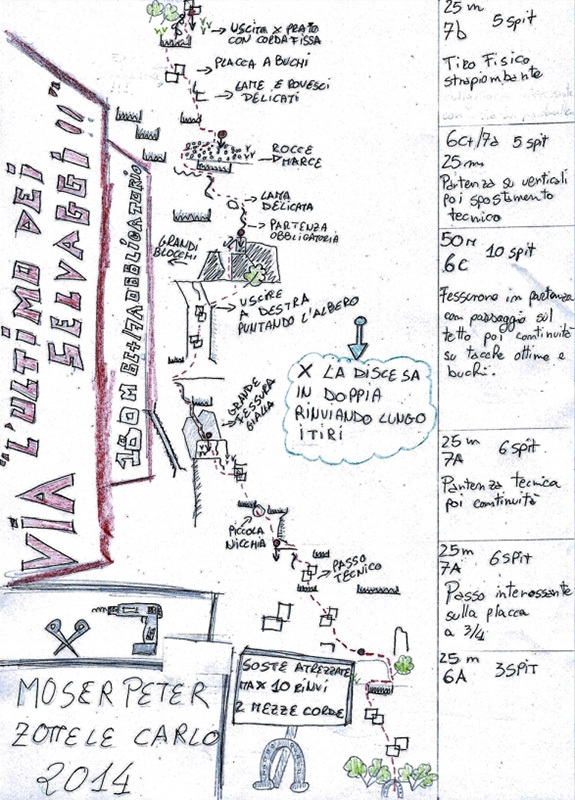 VIA "L'ULTIMO DEI
SELVAGGI!!"
180 M 6C+/7A OBBLIGATORIO
USCITA X PRATO
CON CORDA FISSA
PLACCA A BUCHI
LAME E ROVESCI
DELICATI
ROCCE
MARCE
LAMA
DELICATA
PARTENZA
OBBLIGATORIA
GRANDI
BLOCCHI
USCIRE
A DESTRA
PUNTANDO L'ALBERO
GRANDE
FESSURA
GIALLA
X LA DISCESA
IN DOPPIA
RINVIANDO LUNGO
I TIRI
PICCOLA
NICCHIA
PASSO
TECNICO
SOSTE ATREZZATE
MAX 10 RINVI
2 MEZZE CORDE
MOSER PETER
ZOTTELE CARLO
2014
25 m
7b 5 spit
Tiro Fisico
strapiombante
6c+/7a 5 spit
25 m
Partenza su verticali
poi spostamento
tecnico
50 m 10 spit
6c
Fessurone in partenza
con passaggio sul
tetto poi continuità
su tacche ottime e
buchi.
25 m 6 spit
7A
Partenza tecnica
poi continuità
25 m 6 SPIT
7A
Passo interessante
sulla placca
a 3/4
25 m 3 SPIT
6A